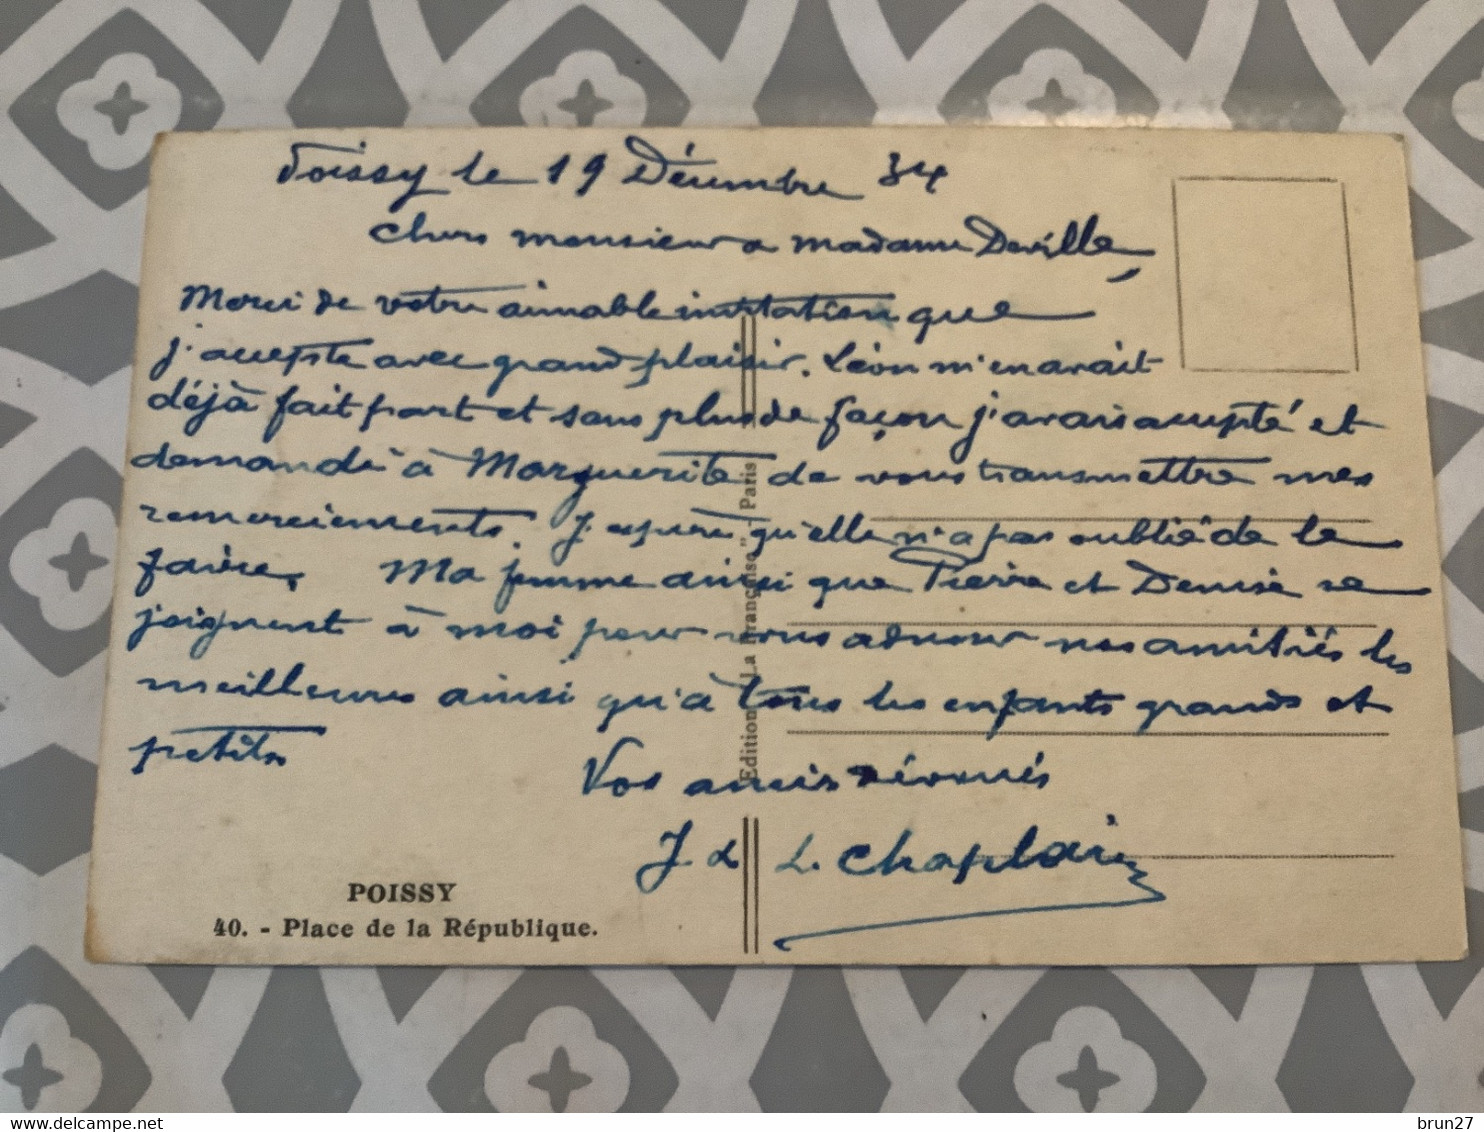 Poissy le 19 Décembre 34
Chers monsieur & madame Deville,
Merci de votre aimable invitation que
j'accepte avec grand plaisir. Léon m'en avait
déjà fait part et sans plus de façon j'avais accepté et
demandé à Marguerite de vous transmettre mes
remerciements. J'espère qu'elle n'a pas oublié de le
faire. Ma femme ainsi que Pierre et Denise se
joignent à moi pour vous adresser nos amitiés les
meilleures ainsi qu'à tous les enfants grands et
petits
Vos amis dévoués
J & L. Chaplain
Edition "La Française" - Paris
POISSY
40. - Place de la République.
delcampe.net
brun27